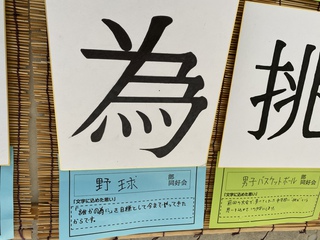 為
野球 部 同好会
【文字に込めた思い】
「誰かの為に」を目標として今までやってきた
からです。
挑
男子バスケットボール 部 同好会
【文字に込めた思い】